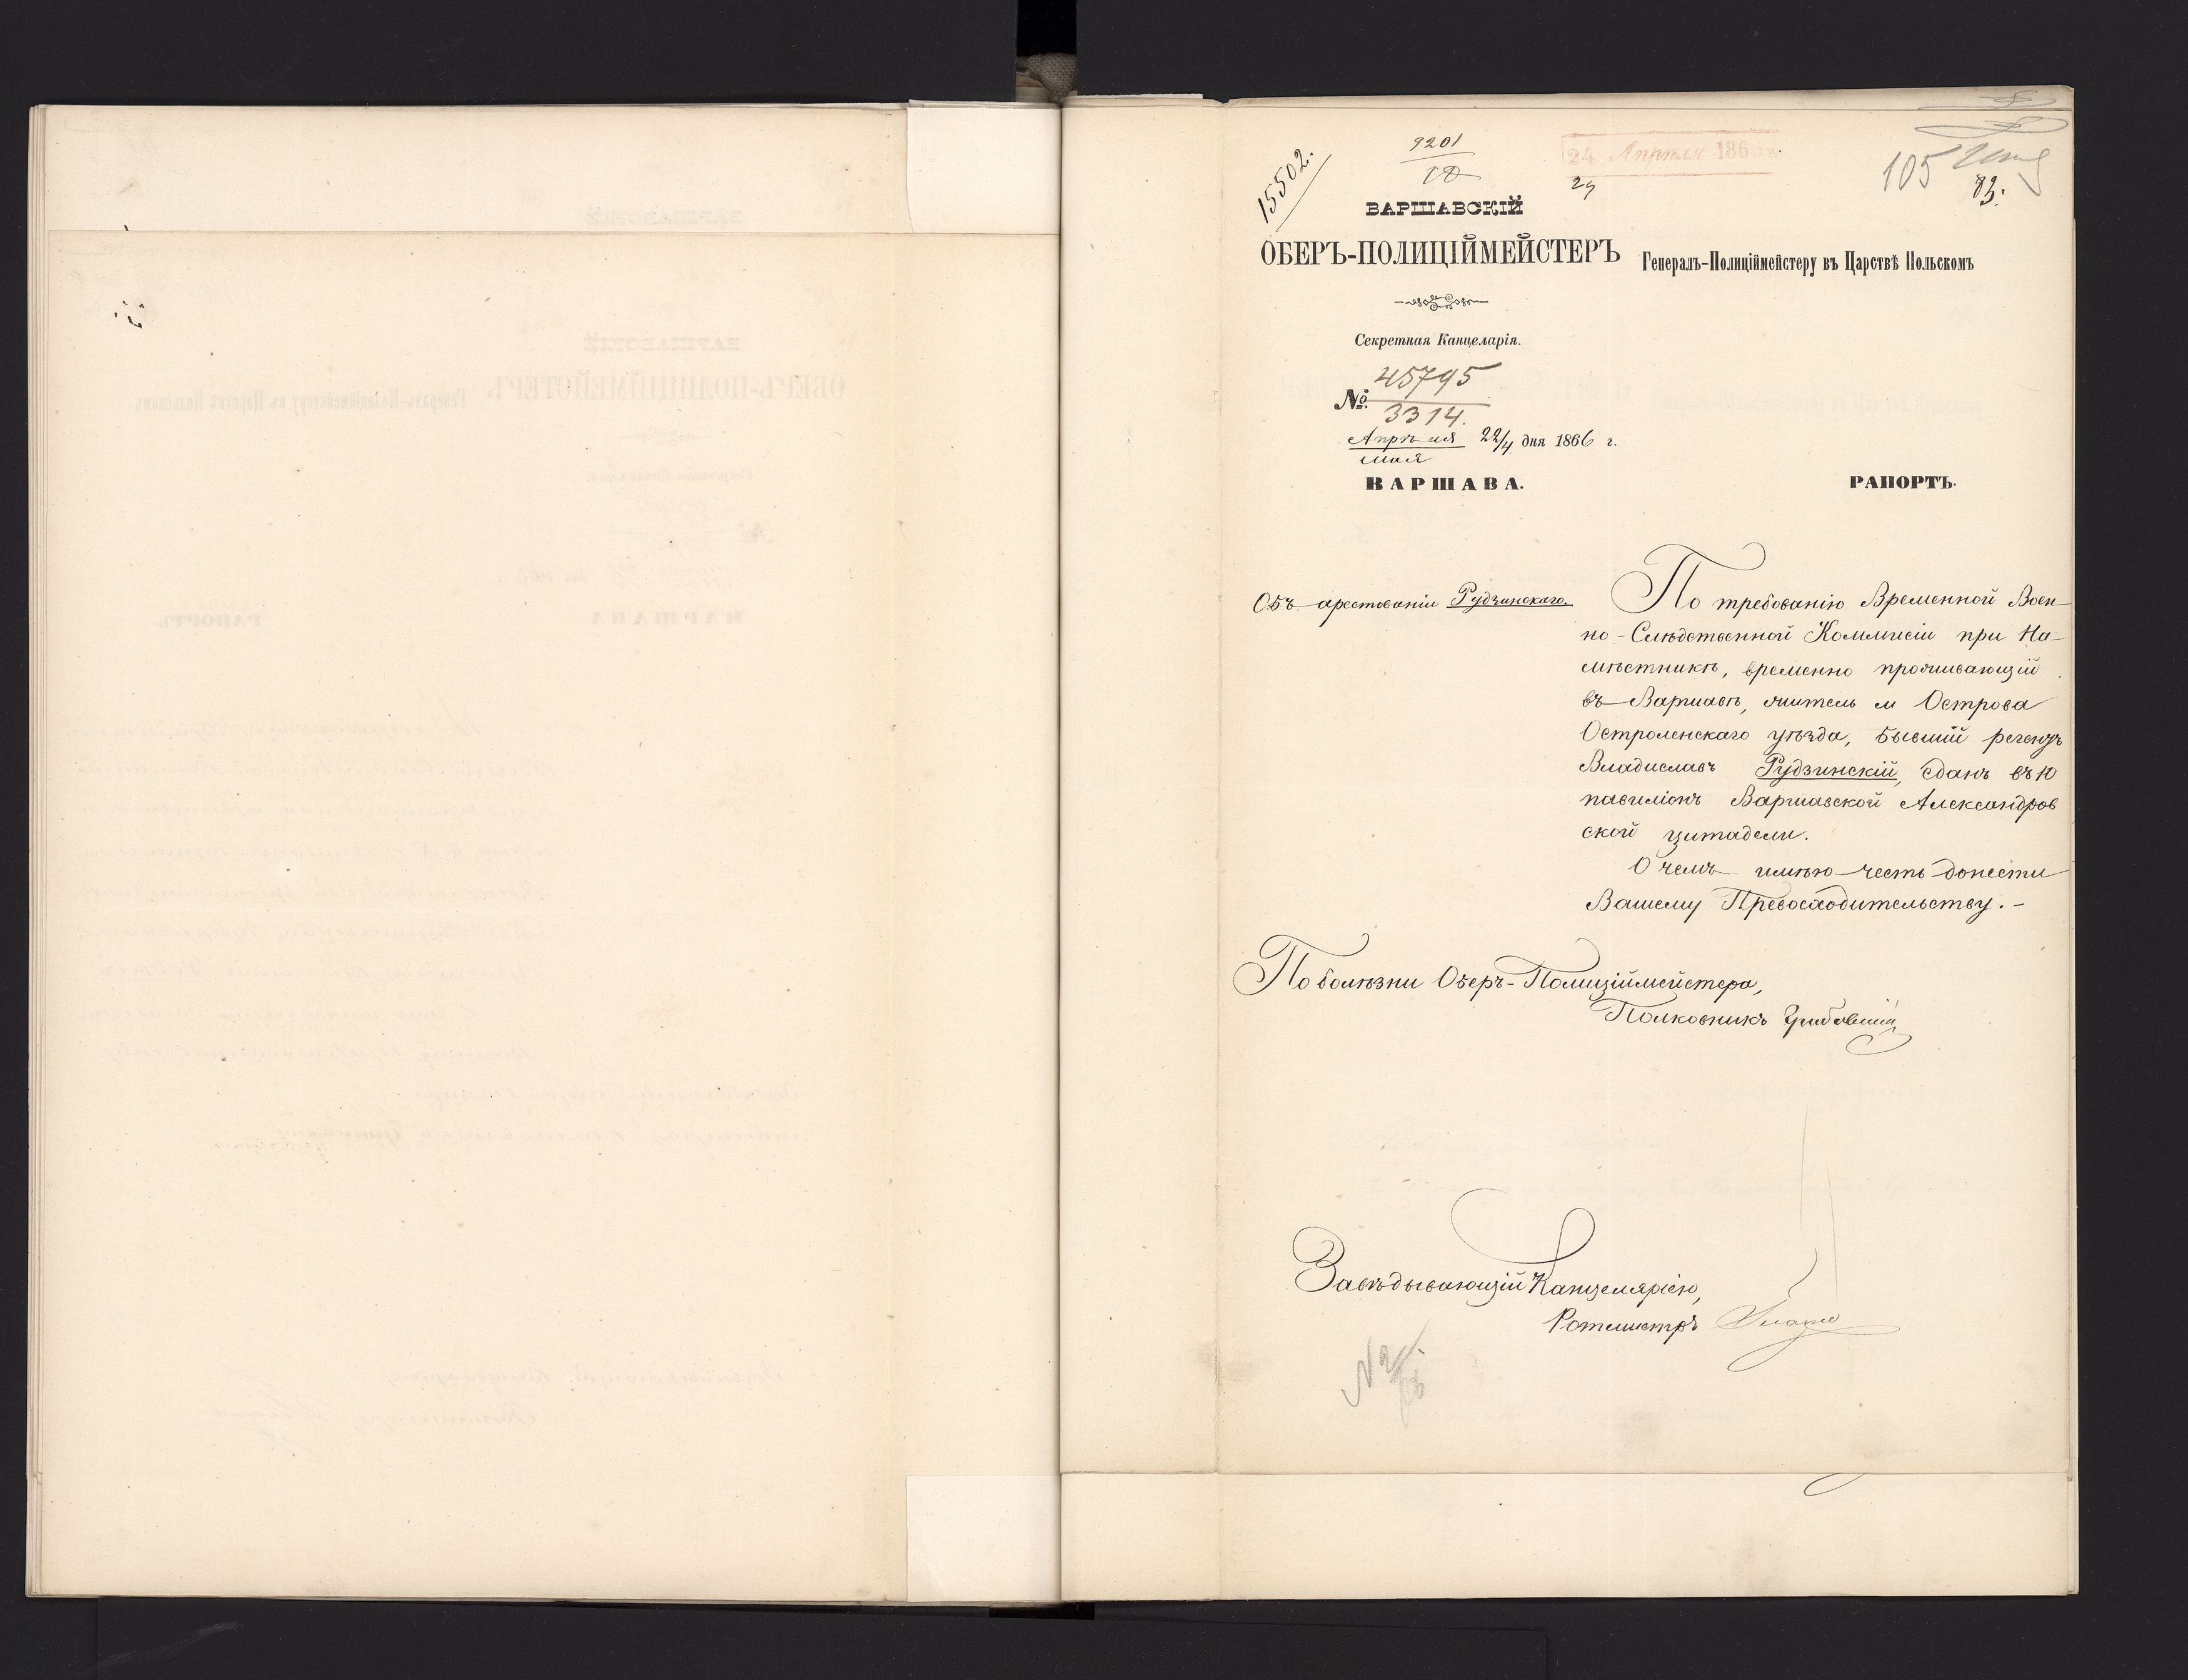 15502.
9201
10
24 Апрѣля 186
29
105
83.
ВАРШАВСКІЙ
ОБЕРЪ-ПОЛИЦІЙМЕЙСТЕРЪ
Генералъ-Полиціймейстеру въ Царствѣ Польскомъ
Секретная Канцеларія.
№ 45795
3314.
Апрѣля 22/4 дня 1866 г.
мая
ВАРШАВА.
РАПОРТЪ.
Объ арестованіи Рудзинскаго.
По требованію Временной Воен-
но-Слѣдственной Коммисіи при На-
мѣстникѣ, временно проживающій
въ Варшавѣ, житель м Острова
Остроленскаго уѣзда, бывшій регентъ
Владиславъ Рудзинскій, сданъ въ 10
павиліонъ Варшавской Александров
ской цитадели.
О чемъ имѣю честь донести
Вашему Превосходительству. –
По болѣзни Оберъ-Полиціймейстера,
Полковникъ
Завѣдывающій Канцеляріею,
Ротмистръ